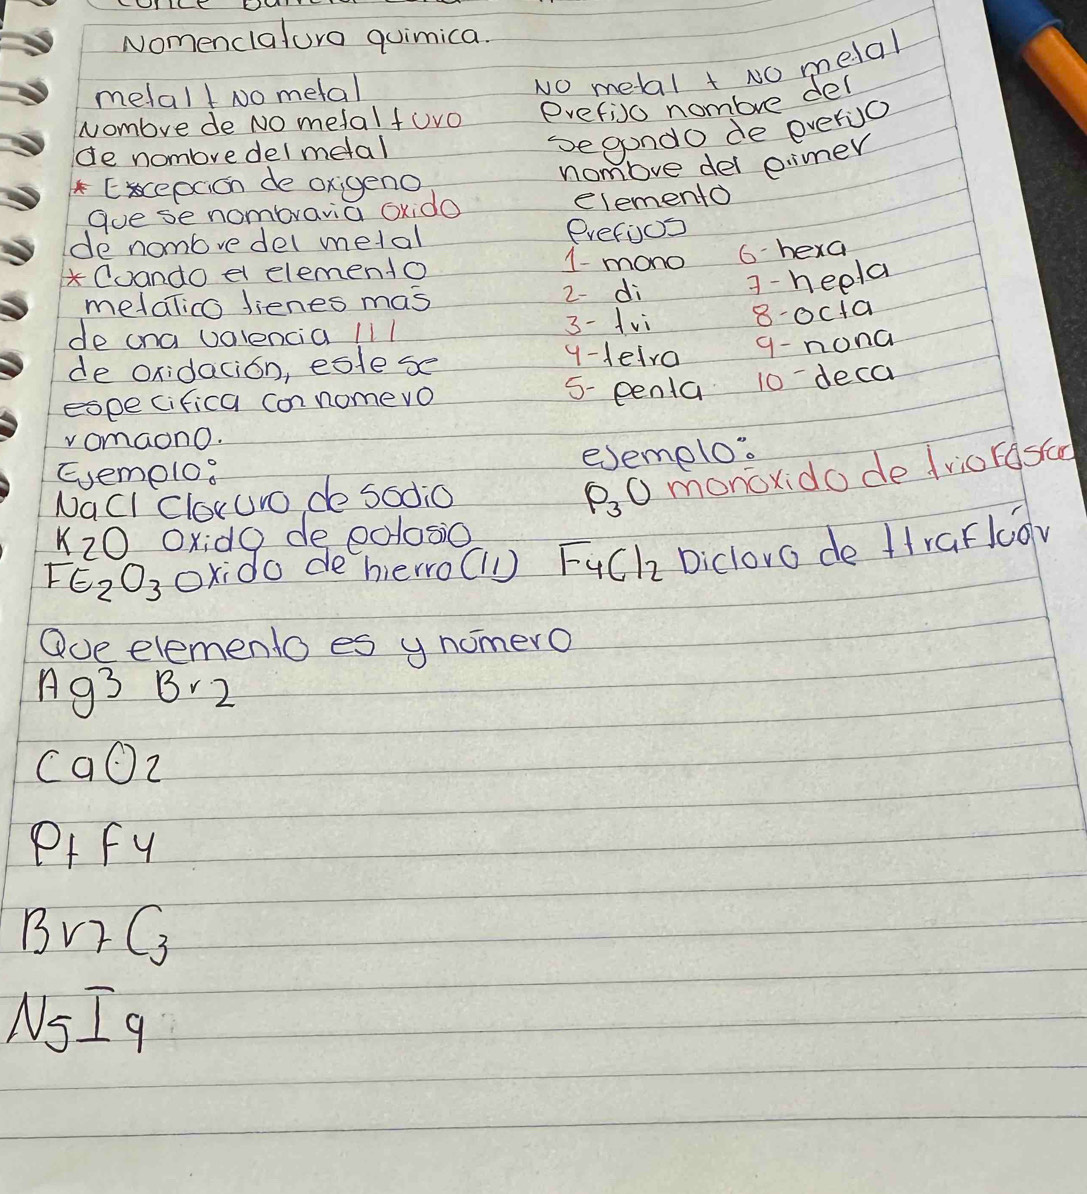 Nomenclatura quimica.
metal + No metal
Nombre de No metal + uro
de nombre del metal
* Excepcion de oxigeno
que se nombraria oxido
de nombre del metal
* Cuando el elemento
metalico tienes más
de una valencia 111
de oxidación, este se
especifica con numero
romaono.
Ejemplo:
NaCl Cloruro de sodio
K2O Oxido de potasio
FE2O3 oxido de hierro (11)
No metal + No metal
Prefijo nombre del
segundo de prefijo
nombre del primer
elemento
Prefijos
1- mono 6- hexa
2- di 7- hepta
3- tri 8- octa
4- tetra 9- nona
5- penta 10- deca
ejemplo:
P3O monóxido de
F4Cl2 Dicloro de
Que elemento es y número
Ag3 Br2
CaO2
Pt F4
Br7 C3
N5 I9